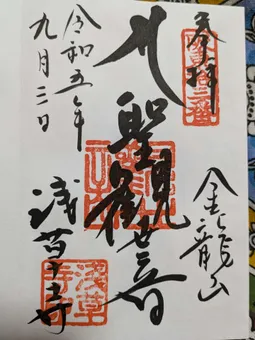 奉拝
金龍山
聖観世音
令和五年
九月三日
浅草寺